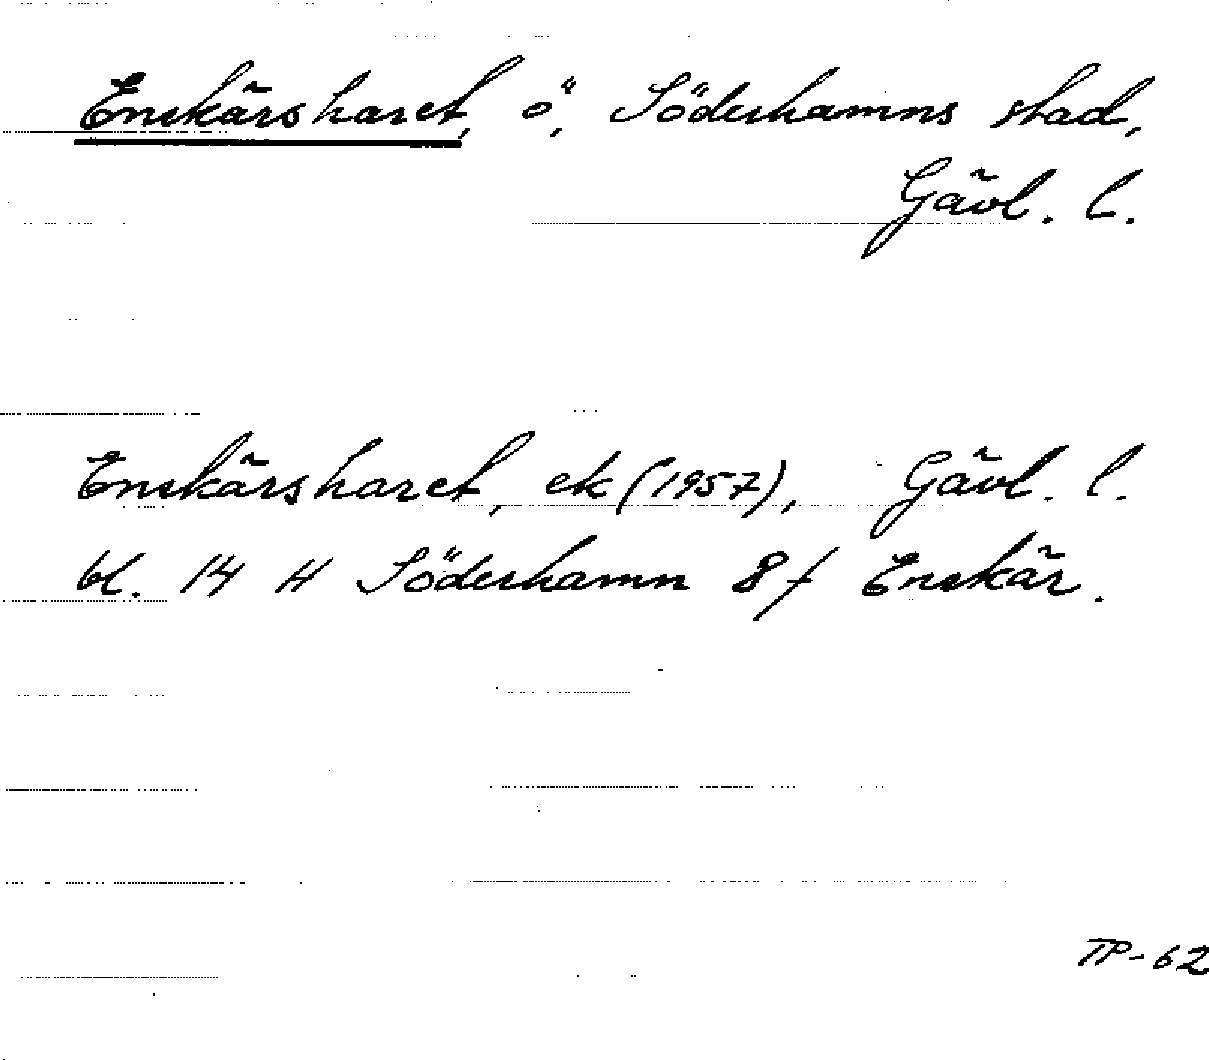 Enskärsharet, ö, Söderhamns stad,
Gävl. l.
Enskärsharet, ek (1957), Gävl. l.
bl. 14 H Söderhamn 8f Enskär.
TP-62